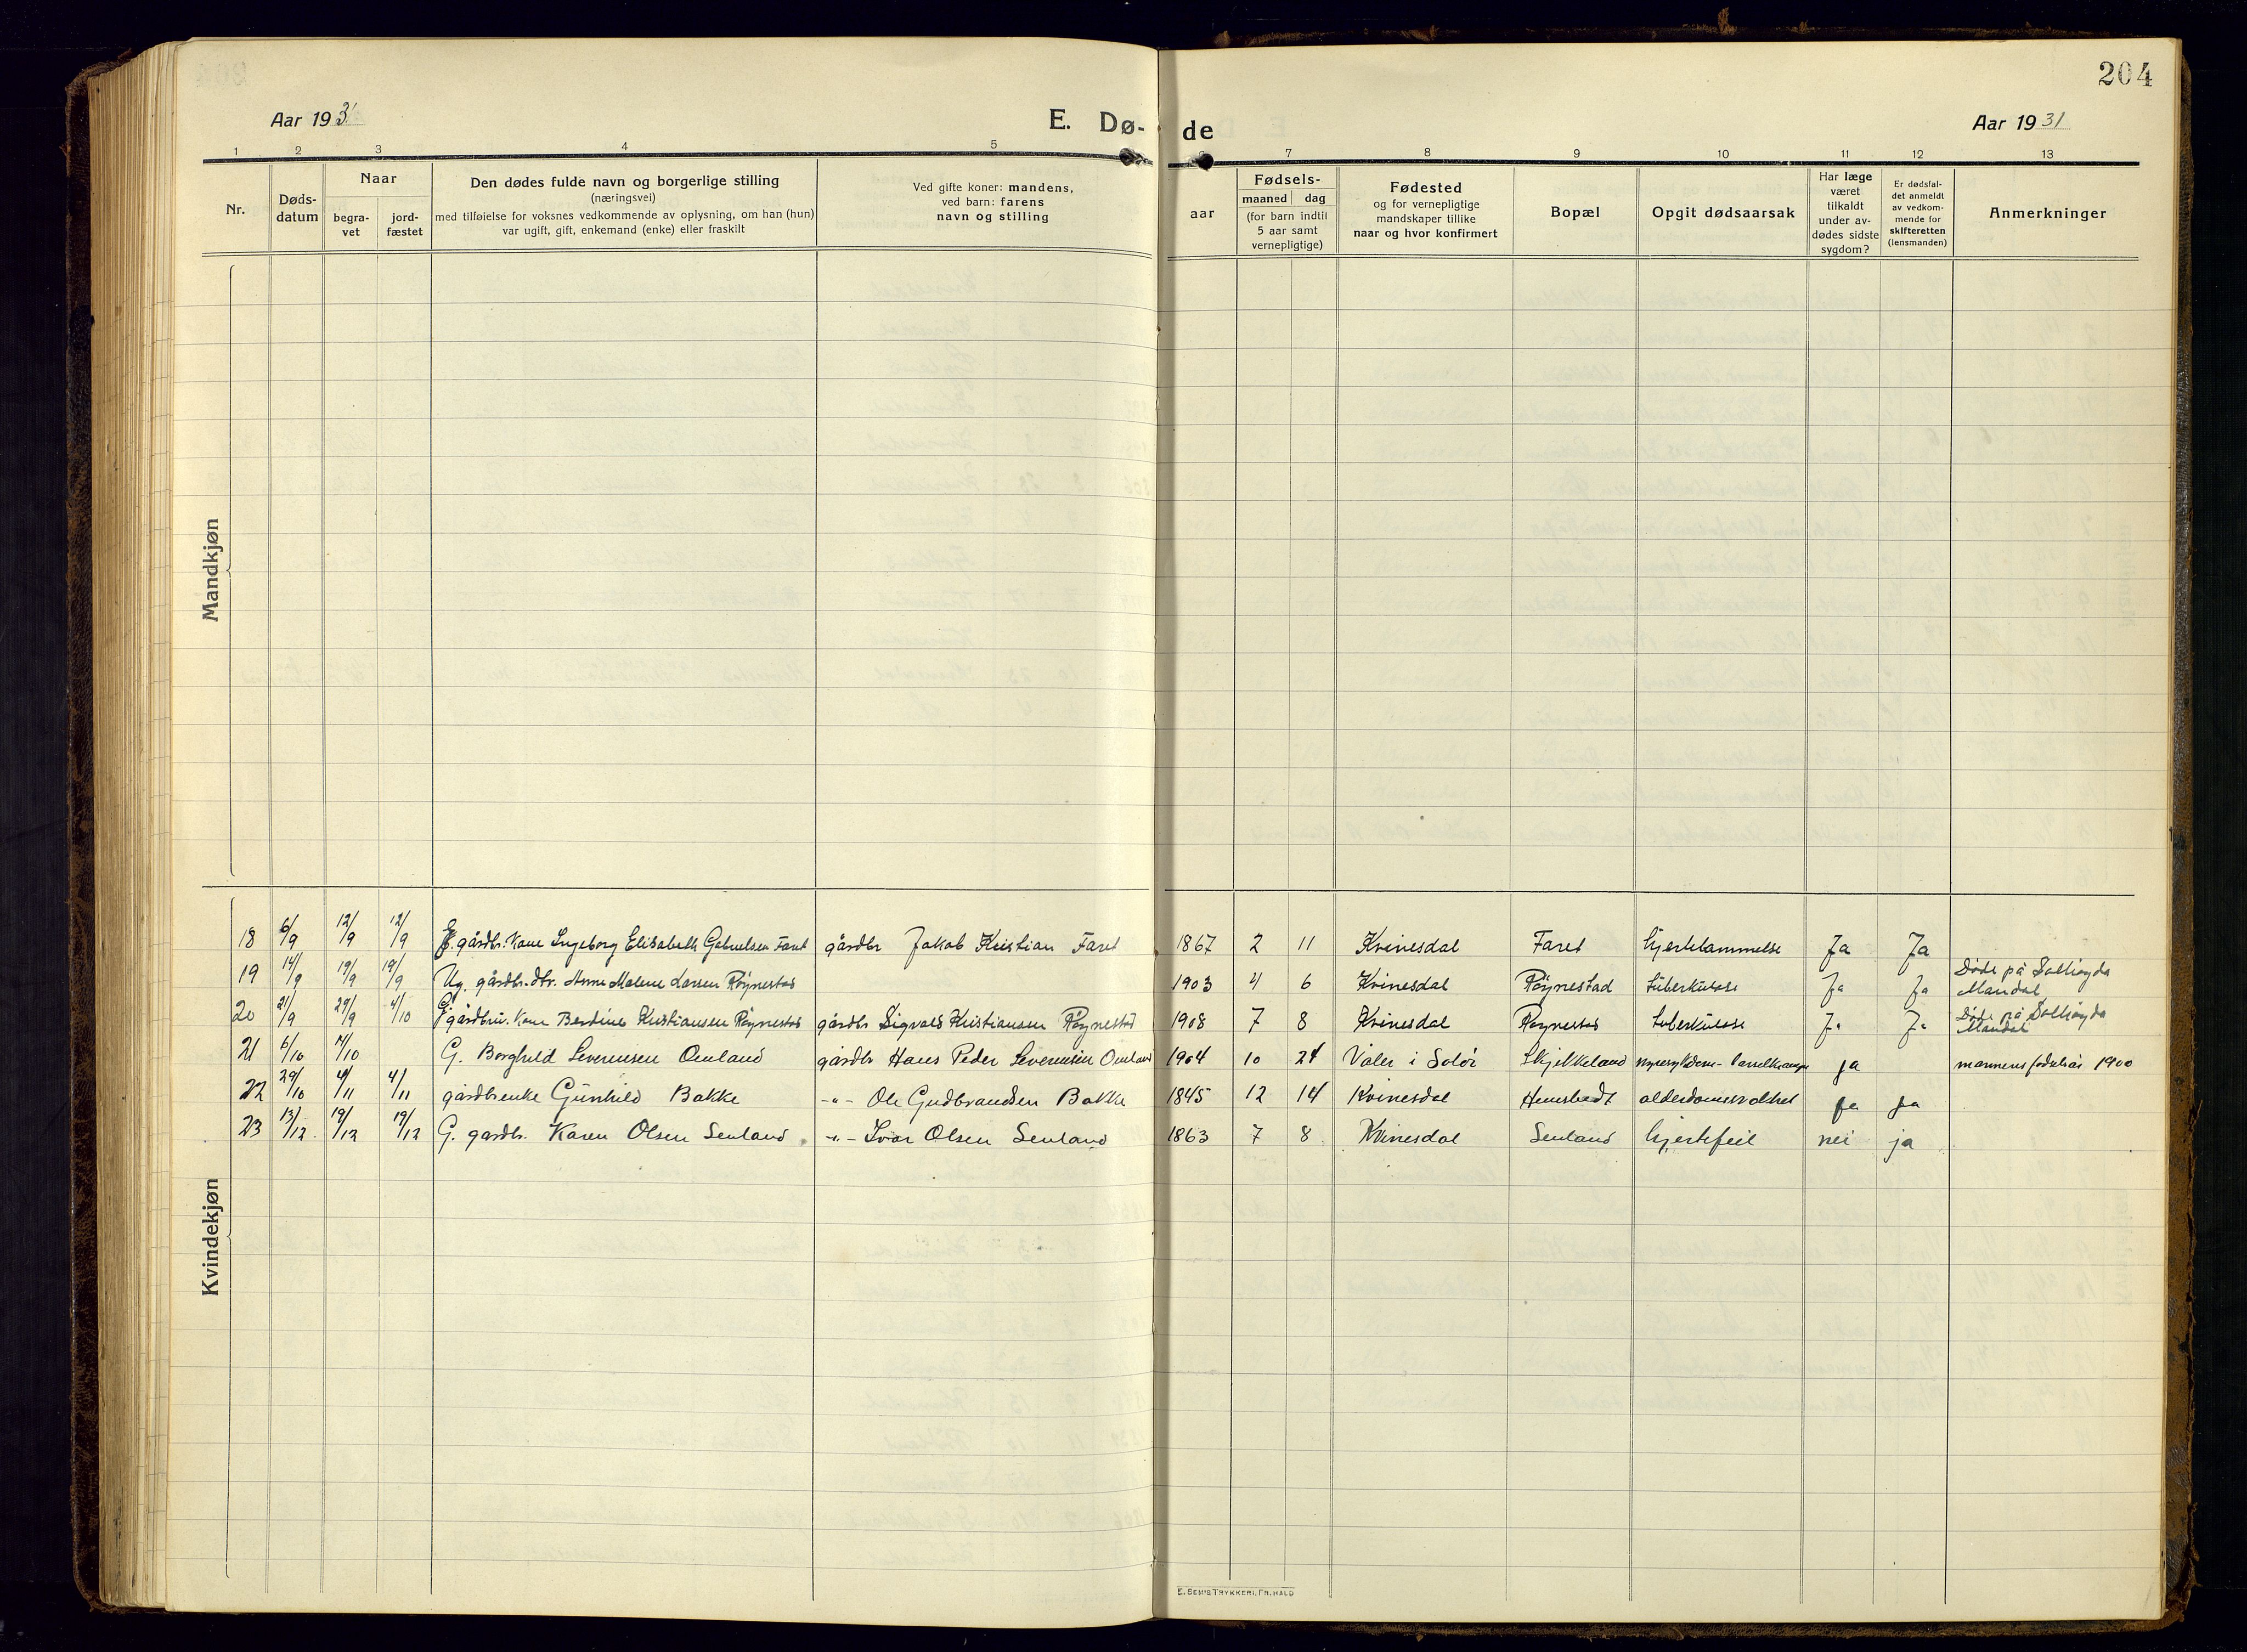 204
Aar 1931
E. Dø-
de
Aar 1931
1 2 3 4 5 7 8 9 10 11 12 13
Nr.
Døds-
datum
Naar
begra-
vet
jord-
fæstet
Den dødes fulde navn og borgerlige stilling
(næringsvei)
med tilføielse for voksnes vedkommende av oplysning, om han (hun)
var ugift, gift, enkemand (enke) eller fraskilt
Ved gifte koner: mandens,
ved barn: farens
navn og stilling
aar
Fødsels-
maaned dag
(for barn indtil
5 aar samt
vernepligtige)
Fødested
og for vernepligtige
mandskaper tillike
naar og hvor konfirmert
Bopæl
Opgit dødsaarsak
Har læge
været
tilkaldt
under av-
dødes sidste
sygdom?
Er dødsfal-
det anmeldt
av vedkom-
mende for
skifteretten
(lensmanden)
Anmerkninger
Mandkjøn
Kvindekjøn
18 6/9 12/9 12/9 gårdbr. kone Ingeborg Elisabeth Gabrielsen Faret gårdbr Jakob Kristian Faret 1867 2 11 Kvinesdal Faret hjertelammelse Ja Ja
19 14/9 19/9 19/9 Ug. gårdbr. dtr. Anne Malene Larsen Röynestad 1903 4 6 Kvinesdal Röynestad tuberkulose Ja Ja Döde på Solhögda Mandal
20 21/9 29/9 4/10 G. gårdbru. kone Berdine Kristiansen Röynestad gårdbr Sigvald Kristiansen Röynestad 1908 7 8 Kvinesdal Röynestad tuberkulose Ja Ja Döde på Solhögda Mandal
21 6/10 /10 G. Borghild Severinsen Omland gårdbr Hans Peder Severinsen Omland 1904 10 24 Våler i Solör Skjekkeland nyresykdom - ja mannens födselsår 1900
22 29/10 4/11 4/11 gårdbrenke Gunhild Bakke -"- Ole Gudbrandsen Bakke 1845 12 14 Kvinesdal alderdomssvakhet ja ja
23 13/12 19/12 19/12 G. gardbr. Karen Olsen Senland -"- Ivar Olsen Senland 1863 7 8 Kvinesdal Senland hjertefeil nei ja
E. SEMS TRYKKERI, FR. HALD